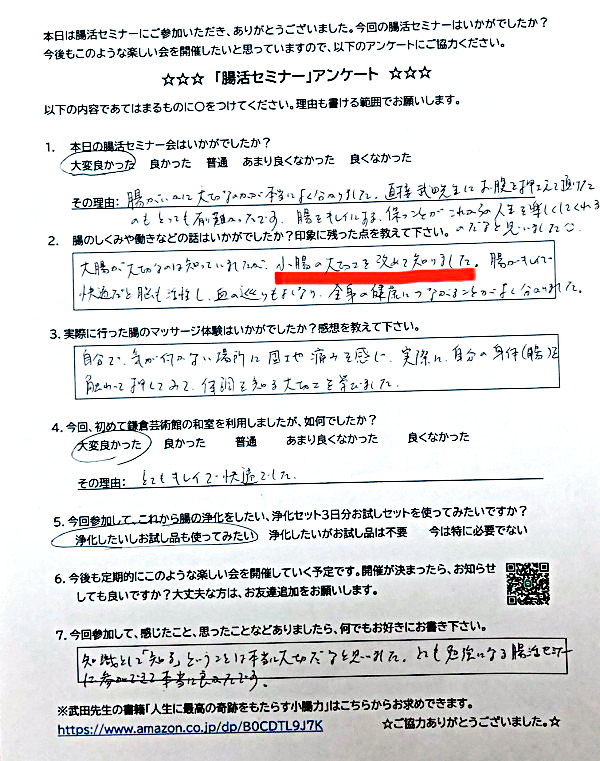 本日は腸活セミナーにご参加いただき、ありがとうございました。今回の腸活セミナーはいかがでしたか?
今後もこのような楽しい会を開催したいと思っていますので、以下のアンケートにご協力ください。
☆☆☆「腸活セミナー」アンケート ☆☆☆
以下の内容であてはまるものに〇をつけてください。理由も書ける範囲でお願いします。
1. 本日の腸活セミナー会はいかがでしたか?
大変良かった 良かった 普通 あまり良くなかった 良くなかった
その理由: 腸がいかに大切なのかが本当によく分かりました。直接武田先生にお腹を押さえて頂けた
のもとっても有難かったです。腸をキレイにする、保つことがこれからの人生を楽しくしてくれる
のだなと思いました
2. 腸のしくみや働きなどの話はいかがでしたか?印象に残った点を教えて下さい。
大腸が大切なのは知っていましたが、小腸の大切さを改めて知りました。腸がキレイで
快適だと脳も活性し、血の巡りもよくなり、全身の健康につながることがよく分かりました。
3. 実際に行った腸のマッサージ体験はいかがでしたか?感想を教えて下さい。
自分で、気が付かない場所に固さや痛みを感じ、実際に、自分の身体(腸)を
触わって押してみて、体調を知る大切さを学びました。
4. 今回、初めて鎌倉芸術館の和室を利用しましたが、如何でしたか?
大変良かった 良かった 普通 あまり良くなかった 良くなかった
その理由: とてもキレイで快適でした。
5. 今回参加して、これから腸の浄化をしたい、浄化セット3日分お試しセットを使ってみたいですか?
浄化したいしお試し品も使ってみたい 浄化したいがお試し品は不要 今は特に必要でない
6. 今後も定期的にこのような楽しい会を開催していく予定です。開催が決まったら、お知らせ
しても良いですか?大丈夫な方は、お友達追加をお願いします。
7. 今回参加して、感じたこと、思ったことなどありましたら、何でもお好きにお書き下さい。
知識として「知る」ということは本当に大切だなと思いました。とても勉強になる腸活セミナー
に参加できて本当に良かったです。
※武田先生の書籍「人生に最高の奇跡をもたらす小腸力」はこちらからお求めできます。
https://www.amazon.co.jp/dp/B0CDTL9J7K ☆ご協力ありがとうございました。☆